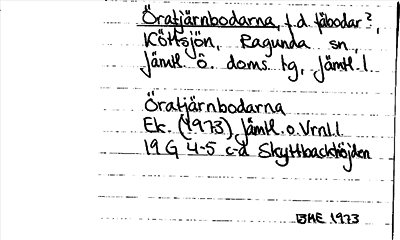 Öratjärnbodarna, f.d. fäbodar?,
Köttsjön, Ragunda sn,
Jämtl. ö. doms. tg, Jämtl. l.
Öratjärnbodarna
Ek. (1973), Jämtl. o. Vrnl. l.
19 G 4-5 c-d Skyttbackhöjden
BME 1973